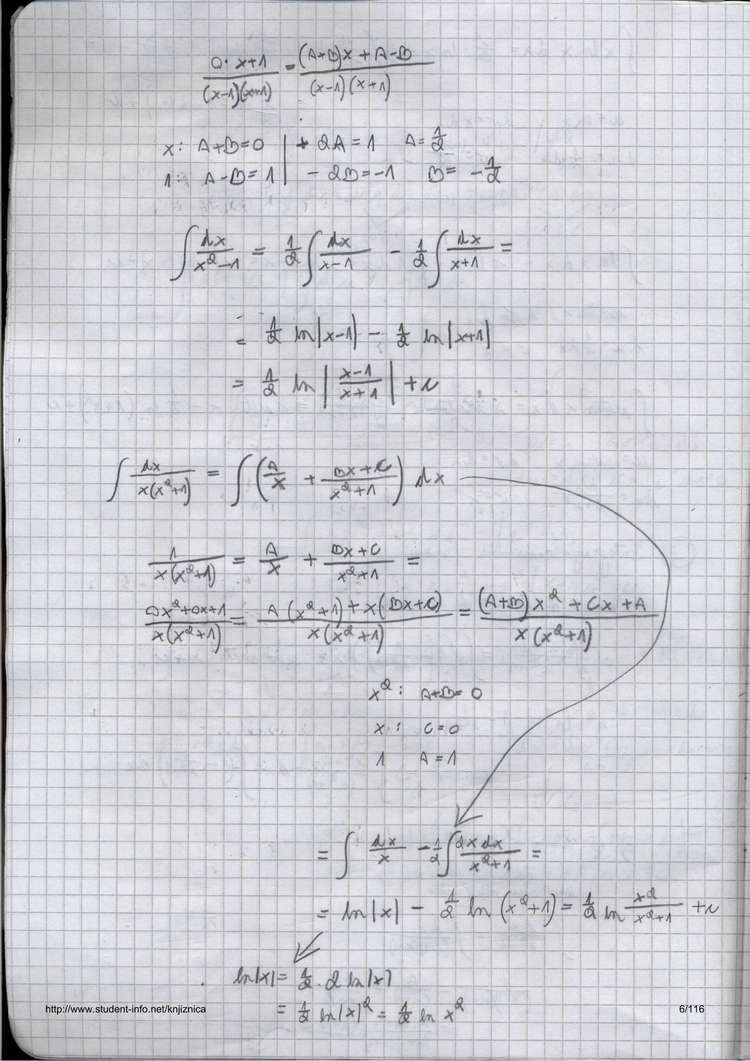 (0·x+1)/((x-1)(x+1)) = ((A+B)x + A-B)/((x-1)(x+1))
x: A+B=0 | + 2A=1 A=1/2
1: A-B=1 | - 2B=-1 B= -1/2
∫ dx/(x²-1) = 1/2 ∫ dx/(x-1) - 1/2 ∫ dx/(x+1) =
= 1/2 ln|x-1| - 1/2 ln|x+1|
= 1/2 ln |(x-1)/(x+1)| + c
∫ dx/(x(x²+1)) = ∫ (A/x + (Bx+C)/(x²+1)) dx
1/(x(x²+1)) = A/x + (Bx+C)/(x²+1) =
(0x²+0x+1)/(x(x²+1)) = (A(x²+1)+x(Bx+C))/(x(x²+1)) = ((A+B)x²+Cx+A)/(x(x²+1))
x²: A+B=0
x: C=0
1 A=1
= ∫ dx/x - 1/2 ∫ 2x dx/(x²+1) =
= ln|x| - 1/2 ln(x²+1) = 1/2 ln x²/(x²+1) + c
ln|x| = 1/2 · 2 ln|x|
= 1/2 ln|x|² = 1/2 ln x²
http://www.student-info.net/knjiznica 6/116